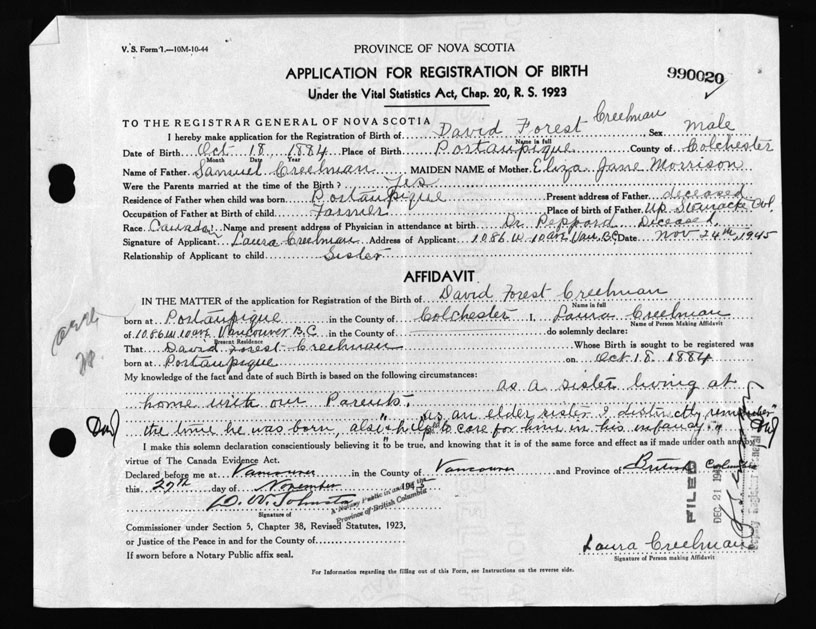 V. S. Form 1.—10M-10-44
PROVINCE OF NOVA SCOTIA
APPLICATION FOR REGISTRATION OF BIRTH
990020
Under the Vital Statistics Act, Chap. 20, R. S. 1923
TO THE REGISTRAR GENERAL OF NOVA SCOTIA
I hereby make application for the Registration of Birth of David Forest Creelman Sex Male
Name in full
Date of Birth Oct 18 1884 Place of Birth Portaupique County of Colchester
Month Date Year
Name of Father Samuel Creelman MAIDEN NAME of Mother Eliza Jane Morrison
Were the Parents married at the time of the Birth? Yes
Residence of Father when child was born Portaupique Present address of Father deceased
Occupation of Father at Birth of child Farmer Place of birth of Father Up. Stewiacke Col.
Race Canadian Name and present address of Physician in attendance at birth Dr Peppard Deceased
Signature of Applicant Laura Creelman Address of Applicant 1086 W 10 ave Van. B.C Date Nov 24th, 1945
Relationship of Applicant to child Sister
AFFIDAVIT
IN THE MATTER of the application for Registration of the Birth of David Forest Creelman
Name in full
born at Portaupique in the County of Colchester I, Laura Creelman
Name of Person Making Affidavit
of 1086 W. 10 ave Vancouver B.C in the County of do solemnly declare:
Present Residence
That David Forest Creelman Whose Birth is sought to be registered was
born at Portaupique on Oct 18 1884
My knowledge of the fact and date of such Birth is based on the following circumstances:
as a sister living at
home with our Parents.
"As an elder sister I distinctly remember
the time he was born, also help to care for him in his infancy."
I make this solemn declaration conscientiously believing it to be true, and knowing that it is of the same force and effect as if made under oath and by
virtue of The Canada Evidence Act.
Declared before me at Vancouver in the County of Vancouver and Province of British Columbia
this 27th day of November 1945
D. W. Johnston
A Notary Public in and for the
Province of British Columbia
Signature of
Commissioner under Section 5, Chapter 38, Revised Statutes, 1923,
or Justice of the Peace in and for the County of
If sworn before a Notary Public affix seal.
FILED
DEC 21 194
Deputy Registrar General
Laura Creelman
Signature of Person making Affidavit
For Information regarding the filling out of this Form, see Instructions on the reverse side.